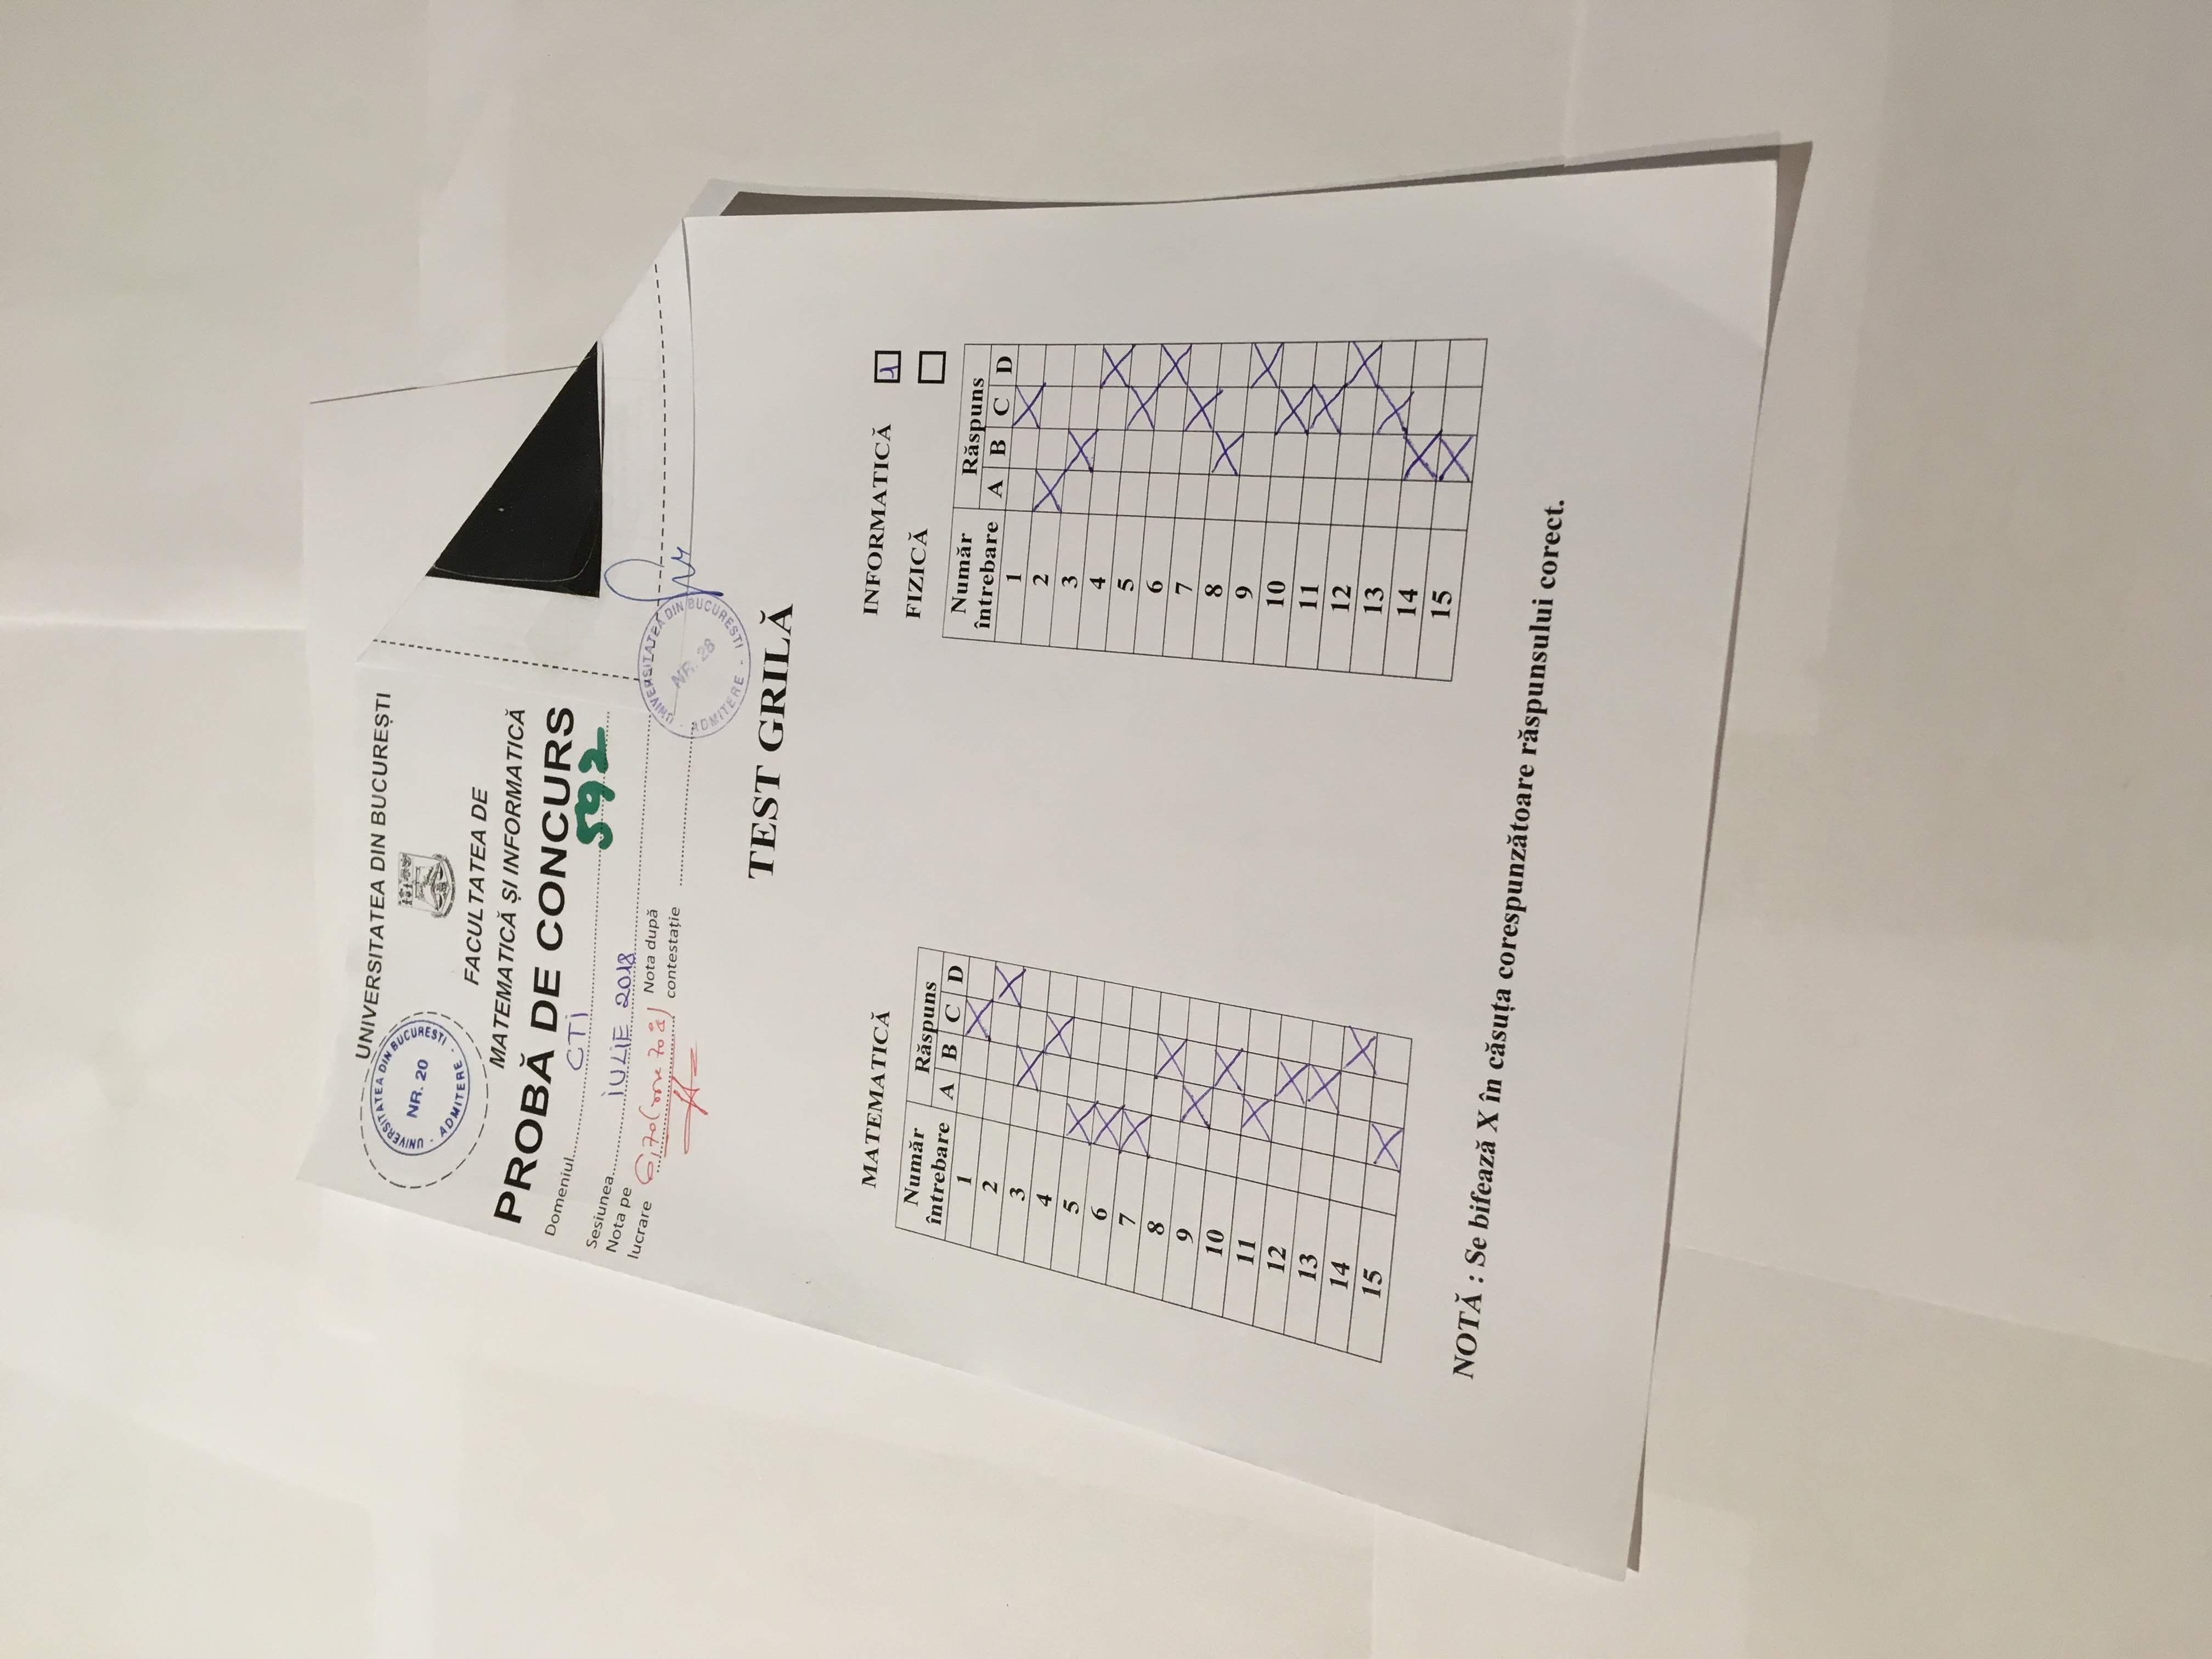 UNIVERSITATEA DIN BUCUREȘTI
UNIVERSITATEA DIN BUCURESTI
NR. 20
- ADMITERE -
FACULTATEA DE
MATEMATICĂ ȘI INFORMATICĂ
PROBĂ DE CONCURS
Domeniul CTI 592
Sesiunea IULIE 2018
Nota pe lucrare 6,70
Nota după contestație
UNIVERSITATEA DIN BUCURESTI
NR. 28
ADMITERE -
TEST GRILĂ
MATEMATICĂ
Număr întrebare Răspuns
A B C D
1 X
2 X
3 X
4 X
5 X
6 X
7 X
8 X
9 X
10 X
11 X
12 X
13 X
14 X
15 X
INFORMATICĂ 1
FIZICĂ
Număr întrebare Răspuns
A B C D
1 X
2 X
3 X
4 X
5 X
6 X
7 X
8 X
9 X
10 X
11 X
12 X
13 X
14 X
15 X
NOTĂ : Se bifează X în căsuța corespunzătoare răspunsului corect.